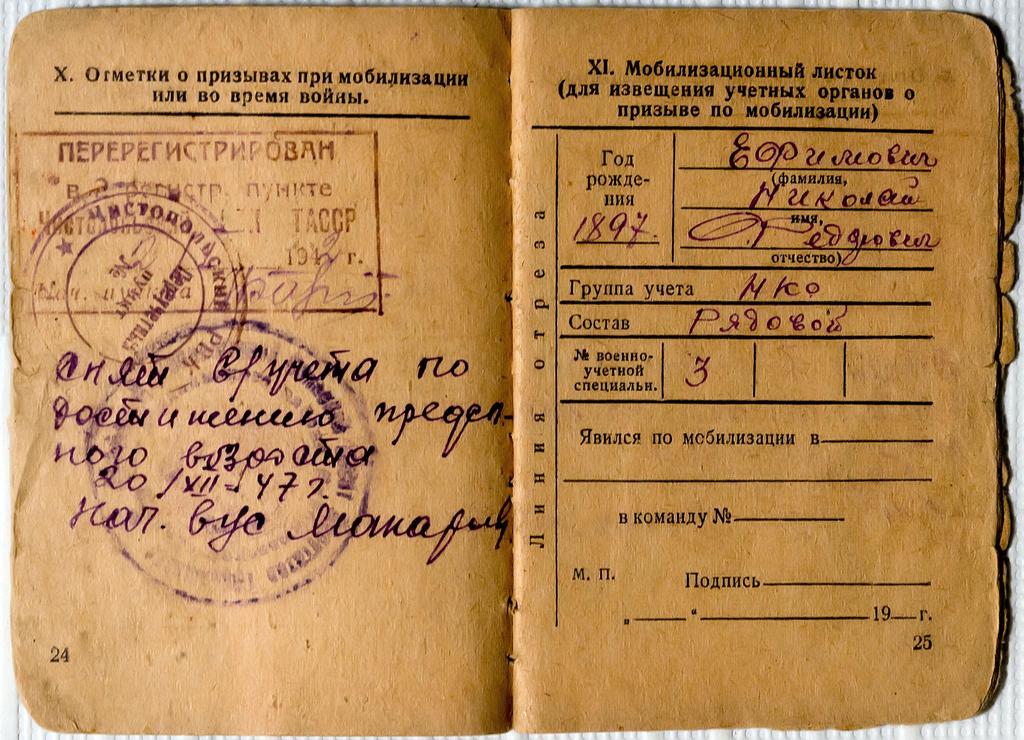 X. Отметки о призывах при мобилизации
или во время войны.
ПЕРЕРЕГИСТРИРОВАН
в 2 регистр. пункте
ТАССР
1942 г.
ЧИСТОПОЛЬСКИЙ
пункт №
снят с в/учета по
достижению предел-
ного возраста
20/XII-47 г.
Нач. вус Макаров
24
XI. Мобилизационный листок
(для извещения учетных органов о
призыве по мобилизации)
Линия отреза
Год
рожде-
ния
1897.
Ефимович
(фамилия,
Николай
имя,
Федорович
отчество)
Группа учета НКО
Состав Рядовой
№ военно-
учетной
специальн.
3
Явился по мобилизации в
в команду №
М. П. Подпись
„ “ 19 г.
25